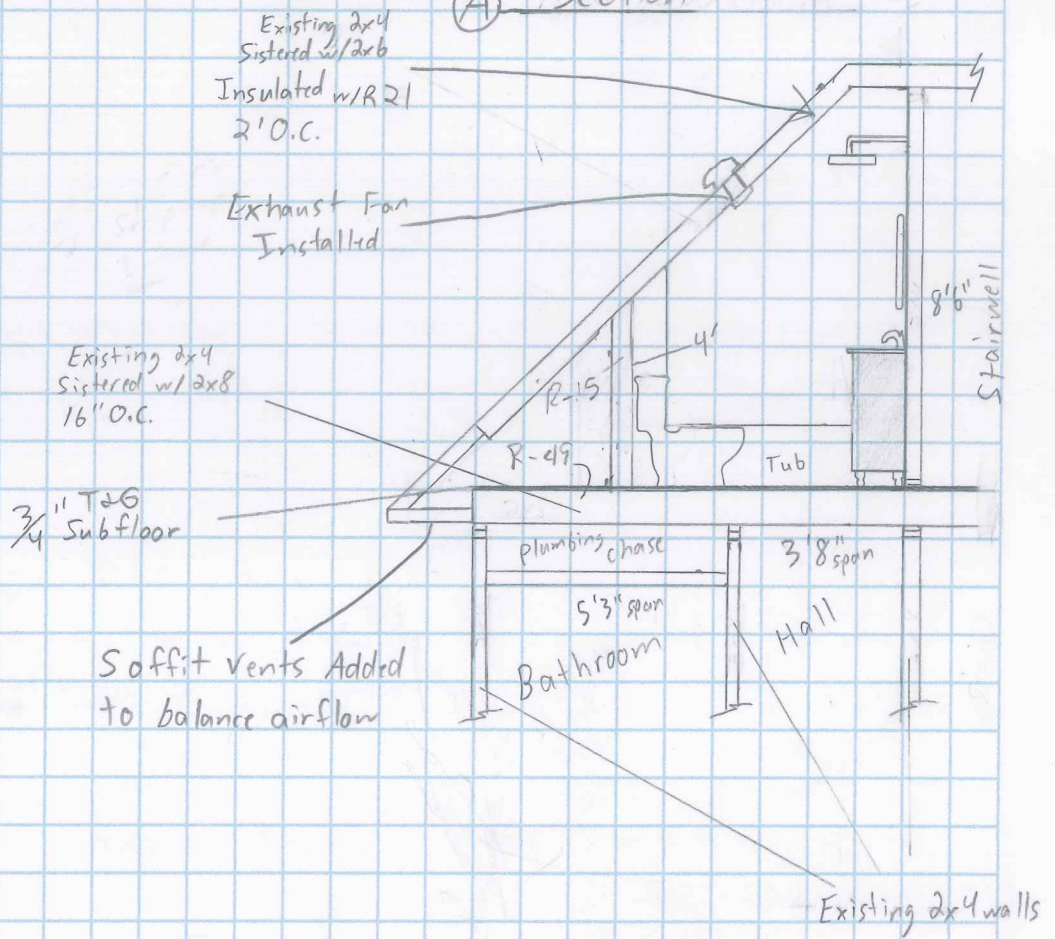 A Section
Existing 2x4
Sistered w/2x6
Insulated w/R21
2' O.C.
Exhaust Fan
Installed
8'6"
Stairwell
4'
Existing 2x4
Sistered w/ 2x8
16" O.C.
R-15
R-49
Tub
3/4" T&G
Subfloor
plumbing chase
3'8" span
5'3" span
Hall
Bathroom
Soffit vents Added
to balance airflow
Existing 2x4 walls